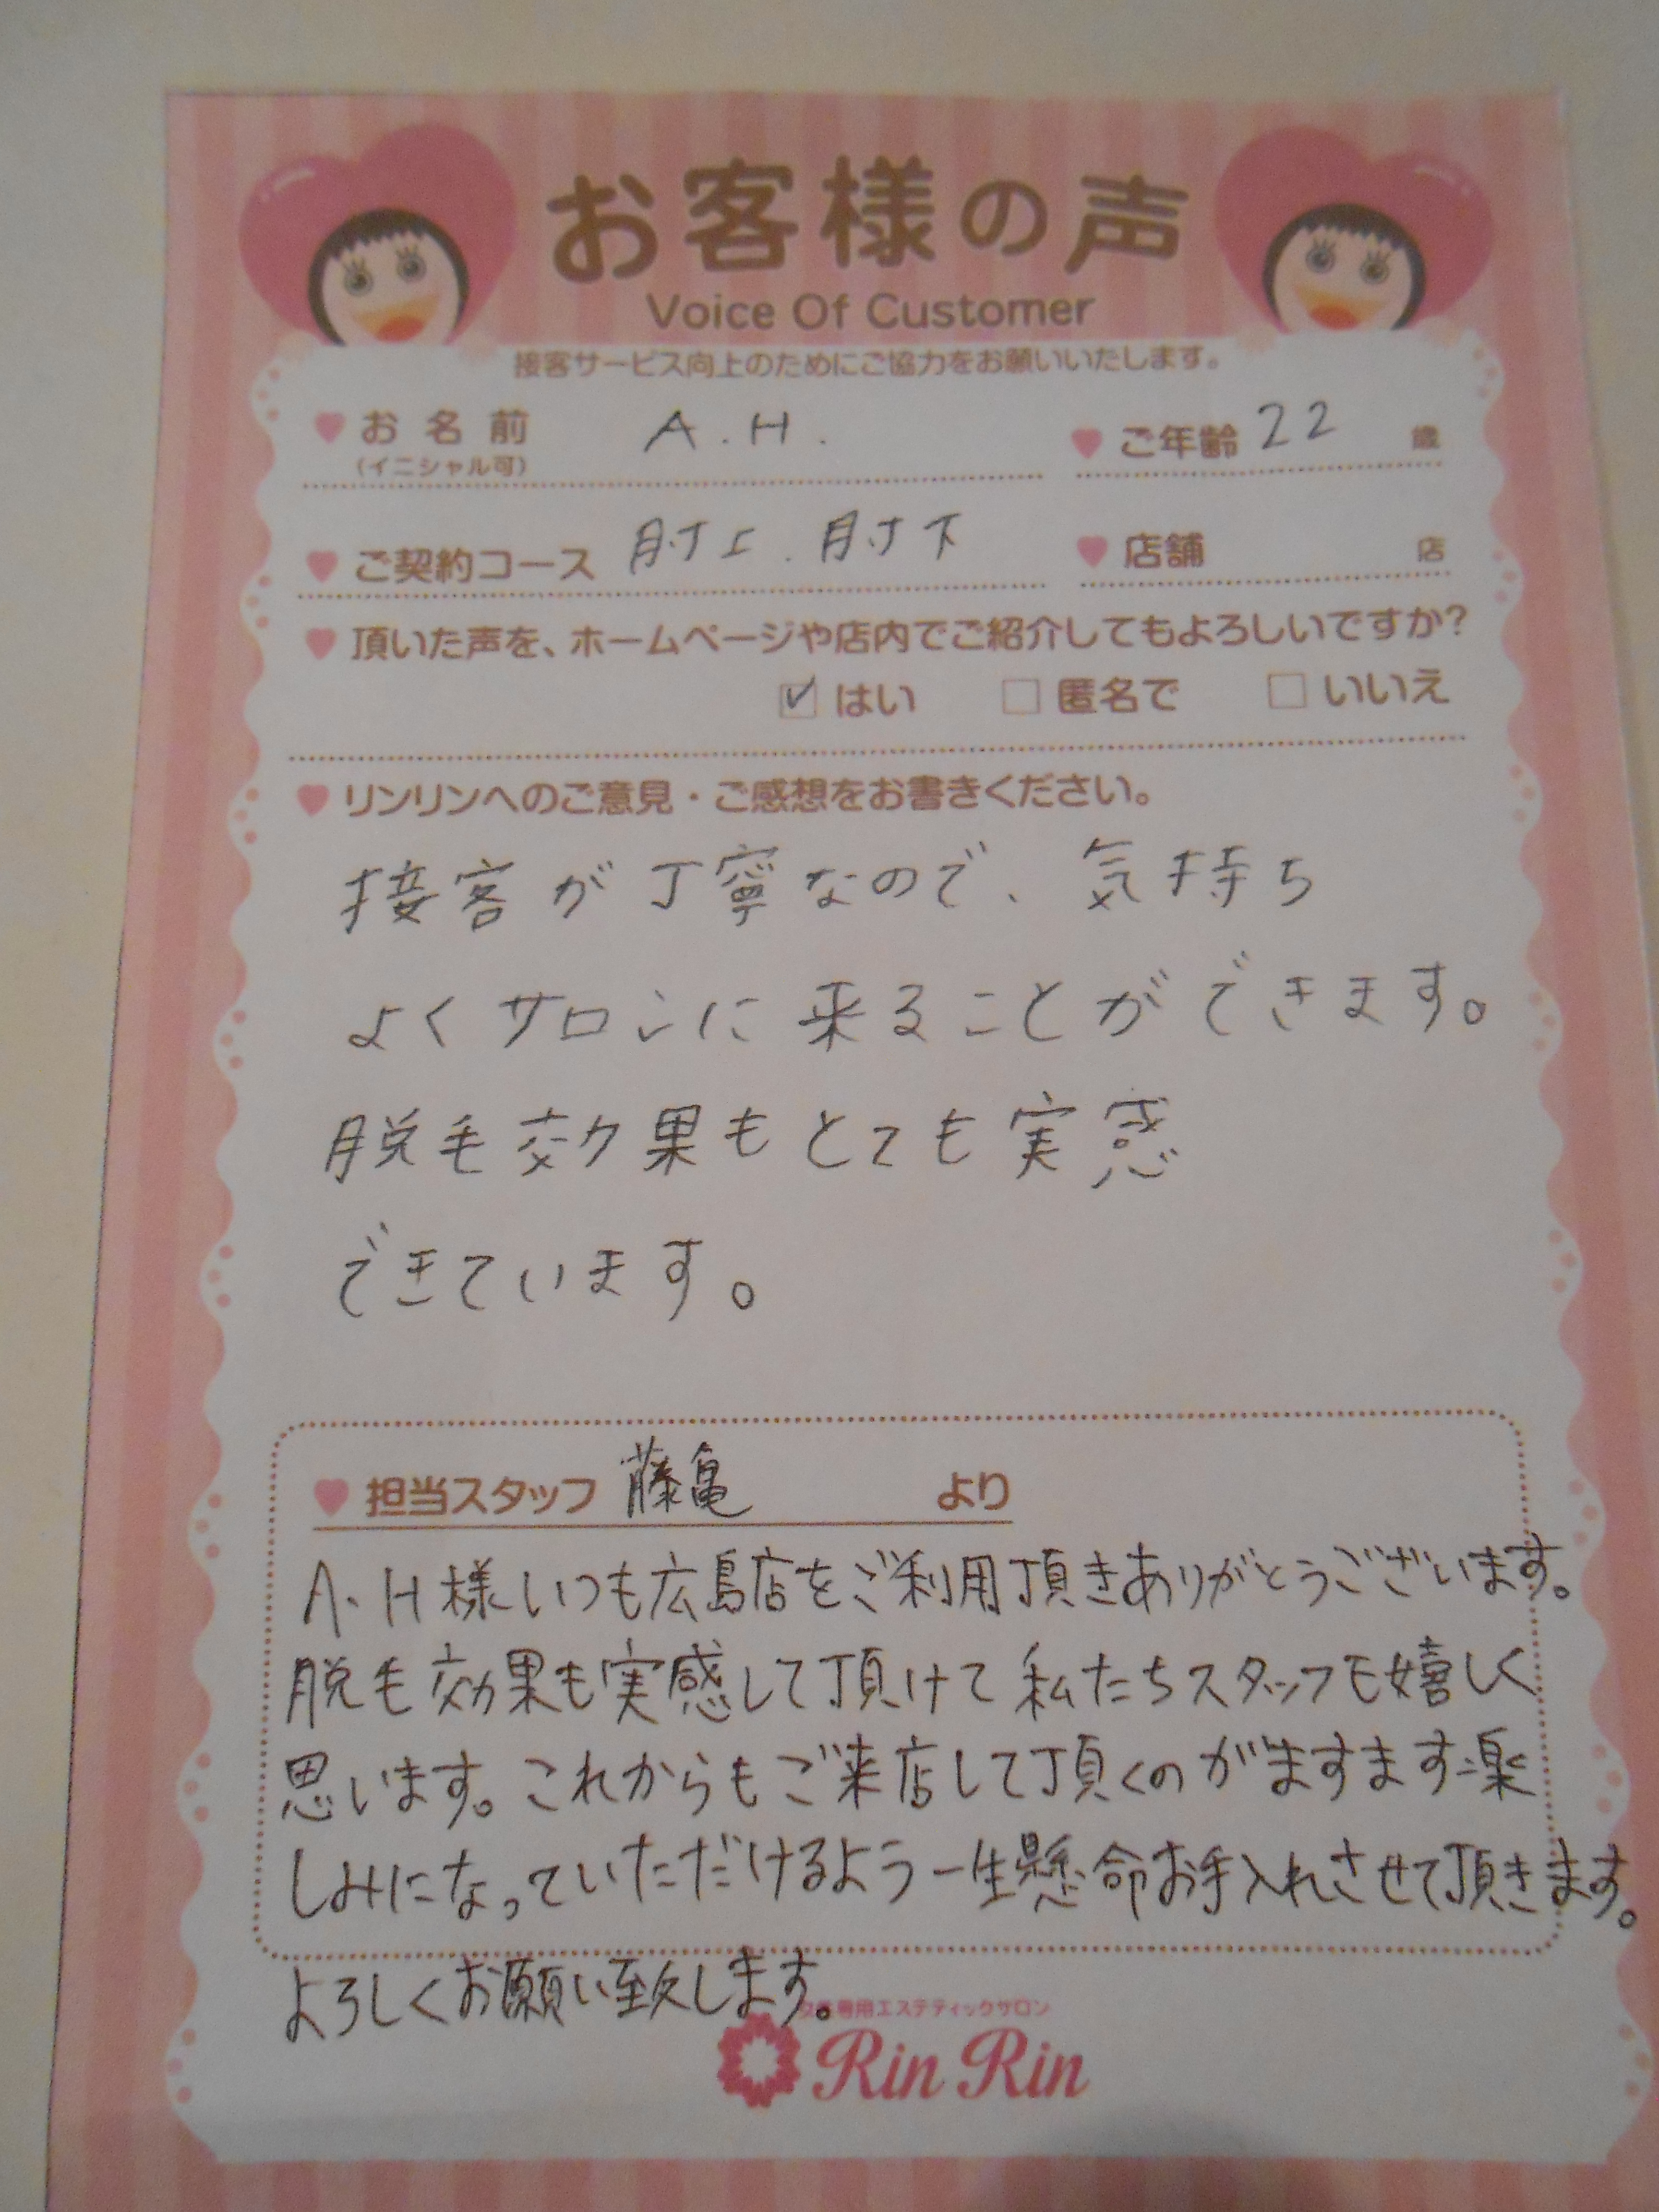 お客様の声
Voice Of Customer
接客サービス向上のためにご協力をお願いいたします。
お名前 A.H. ご年齢 22 歳
(イニシャル可)
ご契約コース 肘上.肘下 店舗 店
頂いた声を、ホームページや店内でご紹介してもよろしいですか?
はい 匿名で いいえ
リンリンへのご意見・ご感想をお書きください。
接客が丁寧なので、気持ち
よくサロンに来ることができます。
脱毛効果もとても実感
できています。
担当スタッフ 藤亀 より
A.H様いつも広島店をご利用頂きありがとうございます。
脱毛効果も実感して頂けて私たちスタッフも嬉しく
思います。これからもご来店して頂くのがますます楽
しみになっていただけるよう一生懸命お手入れさせて頂きます。
よろしくお願い致します。
専用エステティックサロン
Rin Rin